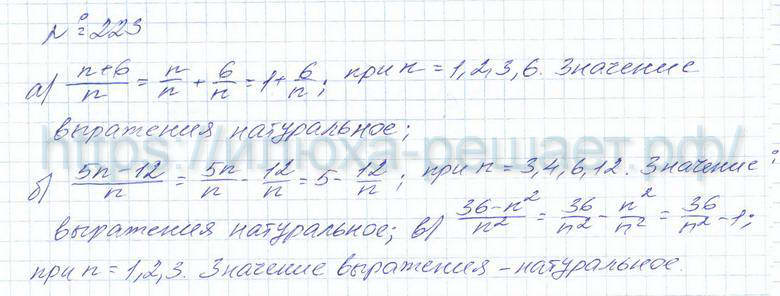 № 223
а) (n+6)/n = n/n + 6/n = 1 + 6/n; при n = 1,2,3,6. Значение
выражения натуральное;
https://илюха-решает.рф/
б) (5n-12)/n = 5n/n - 12/n = 5 - 12/n; при n = 3,4,6,12. Значение
выражения натуральное; в) (36-n²)/n² = 36/n² - n²/n² = 36/n² - 1;
при n = 1,2,3. Значение выражения - натуральное.